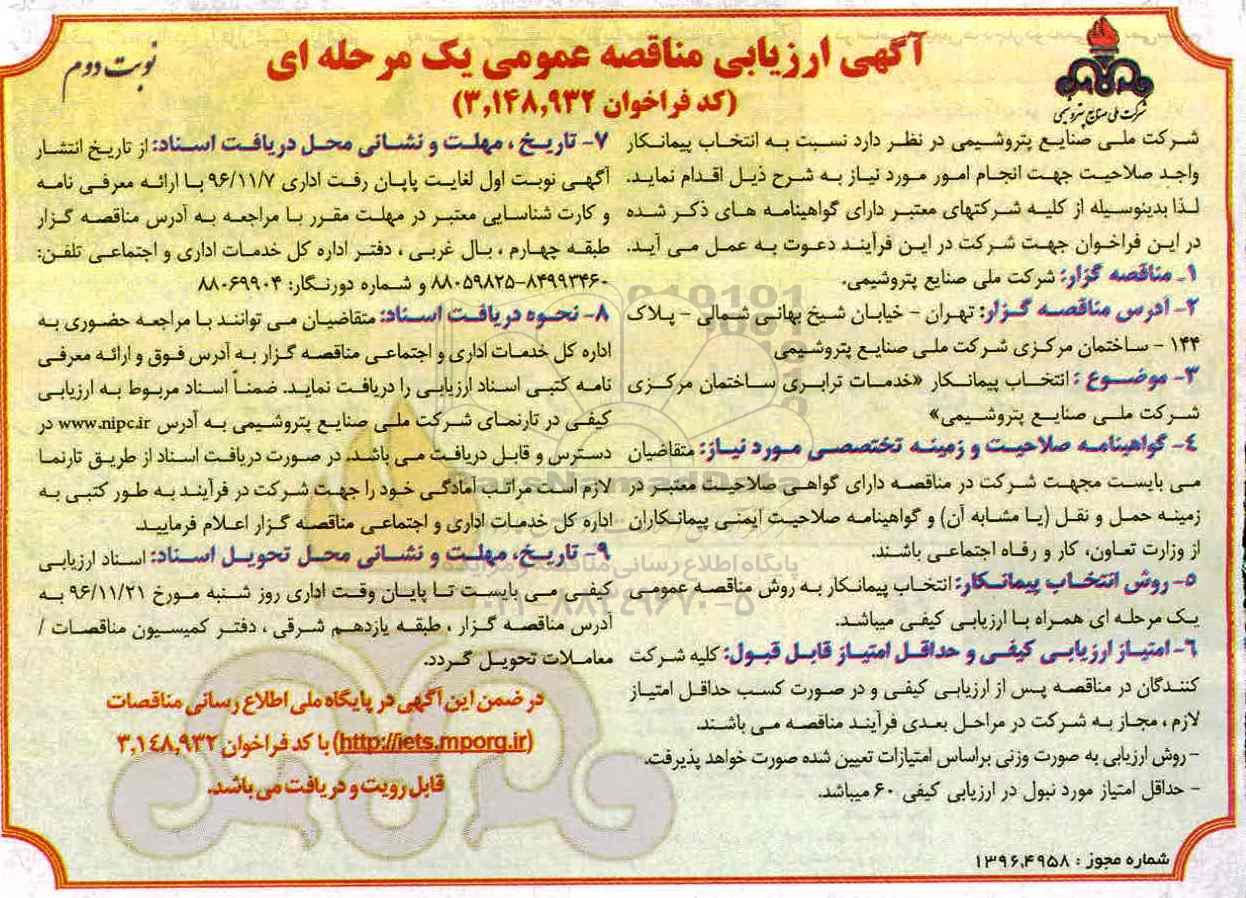 آگهی ارزیابی مناقصه عمومی یک مرحله ای
(کد فراخوان ۳,۱۴۸,۹۳۲)
نوبت دوم
شرکت ملی صنایع پتروشیمی
شرکت ملی صنایع پتروشیمی در نظر دارد نسبت به انتخاب پیمانکار
واجد صلاحیت جهت انجام امور مورد نیاز به شرح ذیل اقدام نماید.
لذا بدینوسیله از کلیه شرکتهای معتبر دارای گواهینامه های ذکر شده
در این فراخوان جهت شرکت در این فرآیند دعوت به عمل می آید.
۱- مناقصه گزار: شرکت ملی صنایع پتروشیمی.
۲- آدرس مناقصه گزار: تهران - خیابان شیخ بهائی شمالی - پلاک
۱۴۴ - ساختمان مرکزی شرکت ملی صنایع پتروشیمی
۳- موضوع : انتخاب پیمانکار «خدمات ترابری ساختمان مرکزی
شرکت ملی صنایع پتروشیمی»
۴- گواهینامه صلاحیت و زمینه تختصصی مورد نیاز: متقاضیان
می بایست مجهت شرکت در مناقصه دارای گواهی صلاحیت معتبر در
زمینه حمل و نقل (یا مشابه آن) و گواهینامه صلاحیت ایمنی پیمانکاران
از وزارت تعاون، کار و رفاه اجتماعی باشند.
۵- روش انتخاب پیمانکار: انتخاب پیمانکار به روش مناقصه عمومی
یک مرحله ای همراه با ارزیابی کیفی میباشد.
۶- امتیاز ارزیابی کیفی و حداقل امتیاز قابل قبول: کلیه شرکت
کنندگان در مناقصه پس از ارزیابی کیفی و در صورت کسب حداقل امتیاز
لازم ، مجاز به شرکت در مراحل بعدی فرآیند مناقصه می باشند.
- روش ارزیابی به صورت وزنی براساس امتیازات تعیین شده صورت خواهد پذیرفت.
- حداقل امتیاز مورد نبول در ارزیابی کیفی ۶۰ میباشد.
۷- تاریخ ، مهلت و نشانی محل دریافت اسناد: از تاریخ انتشار
آگهی نوبت اول لغایت پایان رفت اداری ۹۶/۱۱/۷ با ارائه معرفی نامه
و کارت شناسایی معتبر در مهلت مقرر با مراجعه به آدرس مناقصه گزار
طبقه چهارم ، بال غربی ، دفتر اداره کل خدمات اداری و اجتماعی تلفن:
۸۸۰۵۹۸۲۵-۸۴۹۹۳۴۶۰ و شماره دورنگار: ۸۸۰۶۹۹۰۴
۸- نحوه دریافت اسناد: متقاضیان می توانند با مراجعه حضوری به
اداره کل خدمات اداری و اجتماعی مناقصه گزار به آدرس فوق و ارائه معرفی
نامه کتبی اسناد ارزیابی را دریافت نماید. ضمناً اسناد مربوط به ارزیابی
کیفی در تارنمای شرکت ملی صنایع پتروشیمی به آدرس www.nipc.ir در
دسترس و قابل دریافت می باشد. در صورت دریافت اسناد از طریق تارنما
لازم است مراتب آمادگی خود را جهت شرکت در فرآیند به طور کتبی به
اداره کل خدمات اداری و اجتماعی مناقصه گزار اعلام فرمایید.
۹- تاریخ، مهلت و نشانی محل تحویل اسناد: اسناد ارزیابی
کیفی می بایست تا پایان وقت اداری روز شنبه مورخ ۹۶/۱۱/۲۱ به
آدرس مناقصه گزار ، طبقه یازدهم شرقی ، دفتر کمیسیون مناقصات /
معاملات تحویل گردد.
در ضمن این آگهی در پایگاه ملی اطلاع رسانی مناقصات
(http://iets.mporg.ir) با کد فراخوان ۳,۱۴۸,۹۳۲
قابل رویت و دریافت می باشد.
شماره مجوز : ۱۳۹۶,۴۹۵۸
ParsNamadData
پایگاه اطلاع رسانی مناقصه و مزایده
۰۲۱-۸۸۳۴۹۶۷۰-۵